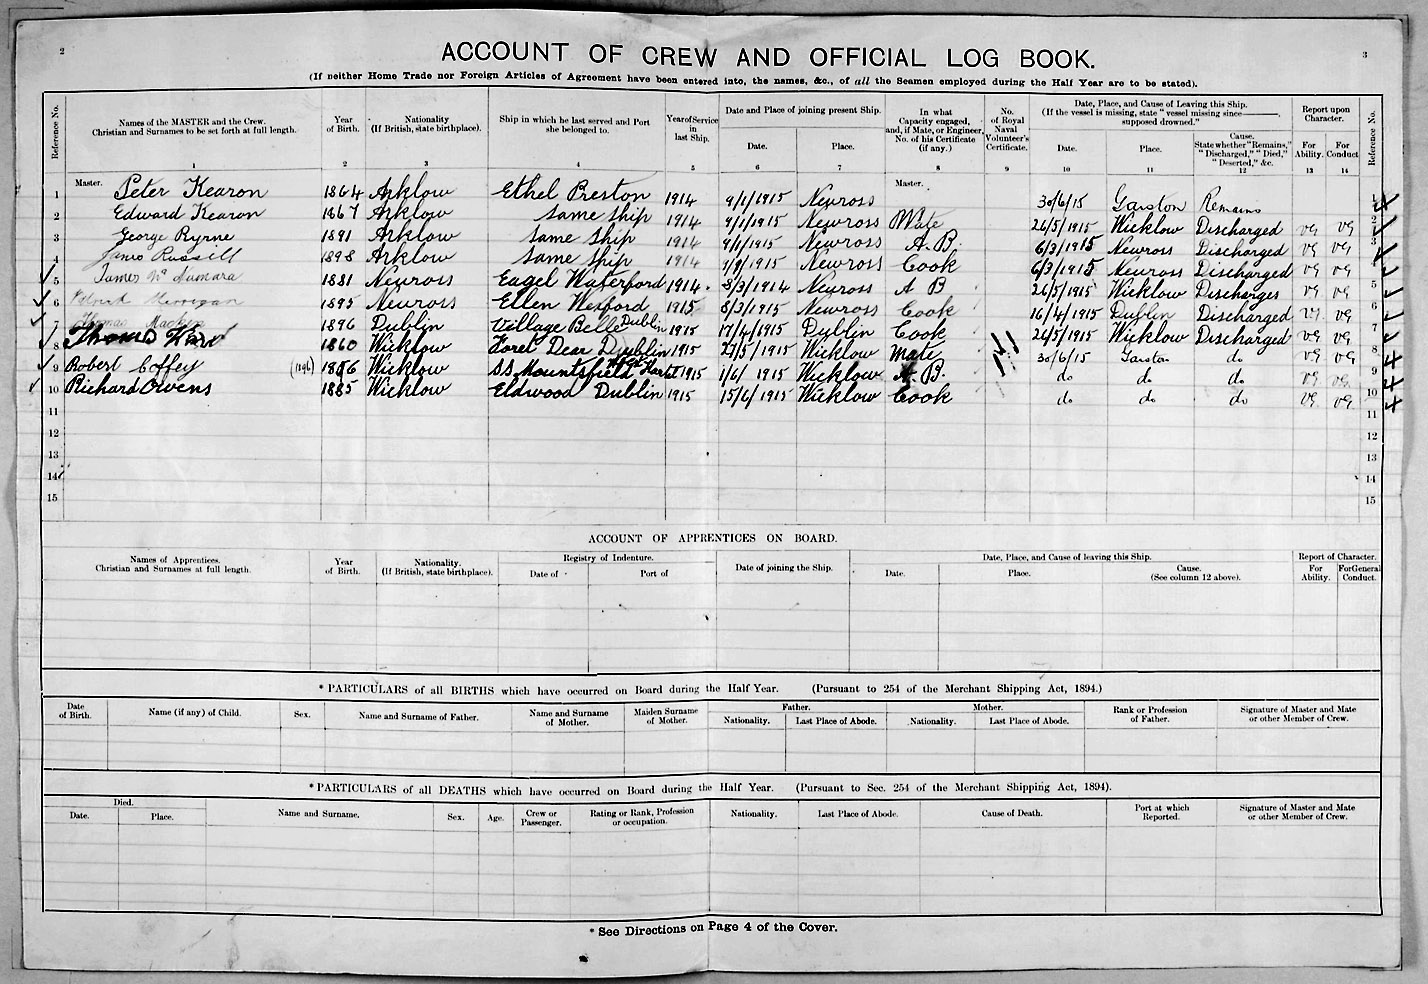 2
3
ACCOUNT OF CREW AND OFFICIAL LOG BOOK.
(If neither Home Trade nor Foreign Articles of Agreement have been entered into, the names, &c., of all the Seamen employed during the Half Year are to be stated).
Reference No. Names of the MASTER and the Crew. Christian and Surnames to be set forth at full length. Year of Birth. Nationality (If British, state birthplace). Ship in which he last served and Port she belonged to. Year of Service in last Ship. Date and Place of joining present Ship. Date. Place. In what Capacity engaged, and, if Mate, or Engineer, No. of his Certificate (if any.) No. of Royal Naval Volunteer's Certificate. Date, Place, and Cause of Leaving this Ship. (If the vessel is missing, state "vessel missing since———, supposed drowned." Date. Place. Cause. State whether "Remains," "Discharged," "Died," "Deserted," &c. Report upon Character. For Ability. For Conduct Reference No.
1 2 3 4 5 6 7 8 9 10 11 12 13 14
1 Master. Peter Kearon 1864 Arklow Ethel Preston 1914 9/1/1915 Newross Master. 30/6/15 Garston Remains 1
2 Edward Kearon 1867 Arklow same ship 1914 9/1/1915 Newross Mate 26/5/1915 Wicklow Discharged VG VG 2
3 George Byrne 1891 Arklow same ship 1914 9/1/1915 Newross A.B. 6/3/1915 Newross Discharged VG VG 3
4 James Russill 1898 Arklow same ship 1914 Newross Cook 6/3/1915 Newross Discharged VG VG 4
5 James Mc Namara 1881 Newross Eagel Waterford 1914 8/3/1914 Newross A B 26/5/1915 Wicklow Discharges VG VG 5
6 Merrigan 1895 Newross Ellen Wexford 1915 8/3/1915 Newross Cook 16/4/1915 Dublin Discharged VG VG 6
7 Thomas 1896 Dublin Village Belle Dublin 1915 17/4/1915 Dublin Cook 26/5/1915 Wicklow Discharged VG VG 7
8 Thomas 1860 Wicklow Foret Dear Dublin 1915 27/5/1915 Wicklow Mate 30/6/15 Garston do VG VG 8
9 Robert Coffey 1886 Wicklow SS Mountsfield West Hartel 1915 1/6/1915 Wicklow A.B. do do do VG VG 9
10 Richard Owens 1885 Wicklow Eldwood Dublin 1915 15/6/1915 Wicklow Cook do do do VG VG 10
11 11
12 12
13 13
14 14
15 15
ACCOUNT OF APPRENTICES ON BOARD.
Names of Apprentices. Christian and Surnames at full length. Year of Birth. Nationality. (If British, state birthplace). Registry of Indenture. Date of Port of Date of joining the Ship. Date, Place, and Cause of leaving this Ship. Date. Place. Cause. (See column 12 above). Report of Character. For Ability. For General Conduct.
* PARTICULARS of all BIRTHS which have occurred on Board during the Half Year. (Pursuant to 254 of the Merchant Shipping Act, 1894.)
Date of Birth. Name (if any) of Child. Sex. Name and Surname of Father. Name and Surname of Mother. Maiden Surname of Mother. Father. Nationality. Last Place of Abode. Mother. Nationality. Last Place of Abode. Rank or Profession of Father. Signature of Master and Mate or other Member of Crew.
* PARTICULARS of all DEATHS which have occurred on Board during the Half Year. (Pursuant to Sec. 254 of the Merchant Shipping Act, 1894).
Died. Date. Place. Name and Surname. Sex. Age. Crew or Passenger. Rating or Rank, Profession or occupation. Nationality. Last Place of Abode. Cause of Death. Port at which Reported. Signature of Master and Mate or other Member of Crew.
* See Directions on Page 4 of the Cover.